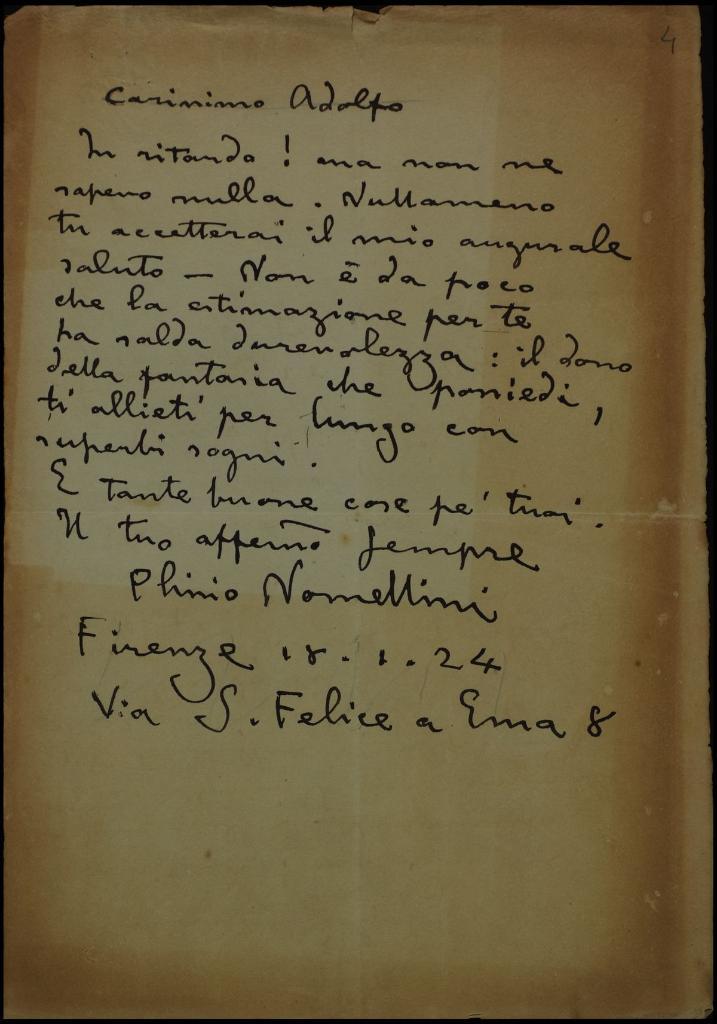 4
Carissimo Adolfo
In ritardo! ma non ne
sapevo nulla. Nullameno
tu accetterai il mio augurale
saluto — Non è da poco
che la estimazione per te
ha salda durevolezza: il dono
della fantasia che possiedi,
ti allieti per lungo con
superbi sogni.
E tante buone cose pe' tuoi.
Il tuo affemo sempre
Plinio Nomellini
Firenze 18.1.24
Via S. Felice a Ema 8